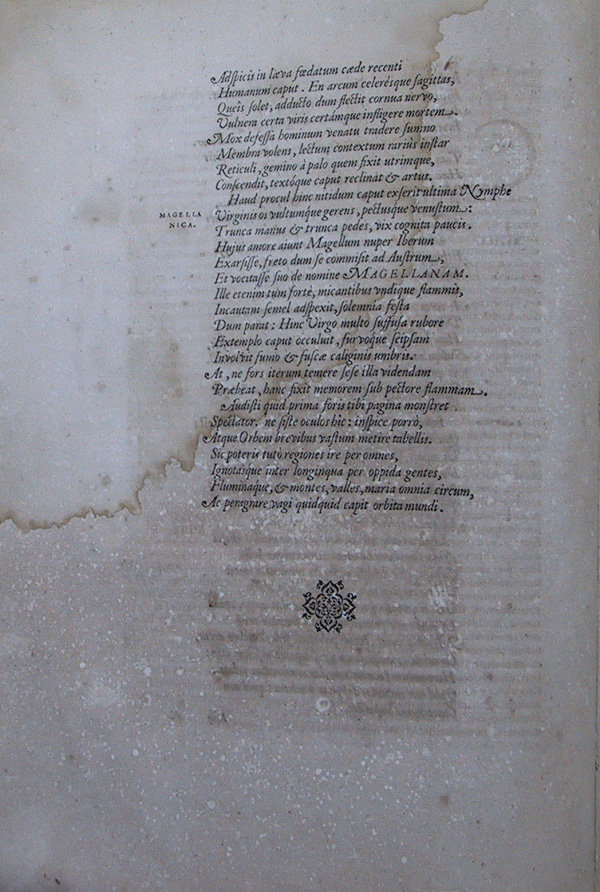 Adſpicis in læva fœdatum cæde recenti
Humanum caput. En arcum celerésque ſagittas,
Queîs ſolet, adducto dum flectit cornua nervo,
Vulnera certa viris certámque infligere mortem.
Mox defeſſa hominum venatu tradere ſumno
Membra volens, lectum contextum rariùs inſtar
Reticuli, gemino à palo quem fixit utrimque,
Conſcendit, textóque caput reclinat & artus.
Haud procul hinc nitidum caput exſerit ultima Nymphe
MAGELLA
NICA.
Virginis os vultumque gerens, pectusque venuſtum:
Trunca manus & trunca pedes, vix cognita paucis.
Hujus amore aiunt Magellum nuper Iberum
Exarſiſſe, freto dum ſe commiſit ad Auſtrum,
Et vocitaſſe ſuo de nomine MAGELLANAM.
Ille etenim tum fortè, micantibus vndique flammis,
Incautam ſemel adſpexit, ſolemnia feſta
Dum parat: Hinc Virgo multo ſuffuſa rubore
Extemplo caput occuluit, furvoque ſeipſam
Involvit fumo & fuſcæ caliginis umbris.
At, ne fors iterum temere ſeſe illa videndam
Præbeat, hanc fixit memorem ſub pectore flammam.
Audiſti quid prima foris tibi pagina monſtret
Spectator. ne ſiſte oculos hîc: inſpice porrò,
Atque Orbem brevibus vaſtum metire tabellis.
Sic poteris tutò regiones ire per omnes,
Ignotasque inter longinqua per oppida gentes,
Fluminaque, & montes, valles, maria omnia circum,
Ac peragrare vagi quidquid capit orbita mundi.